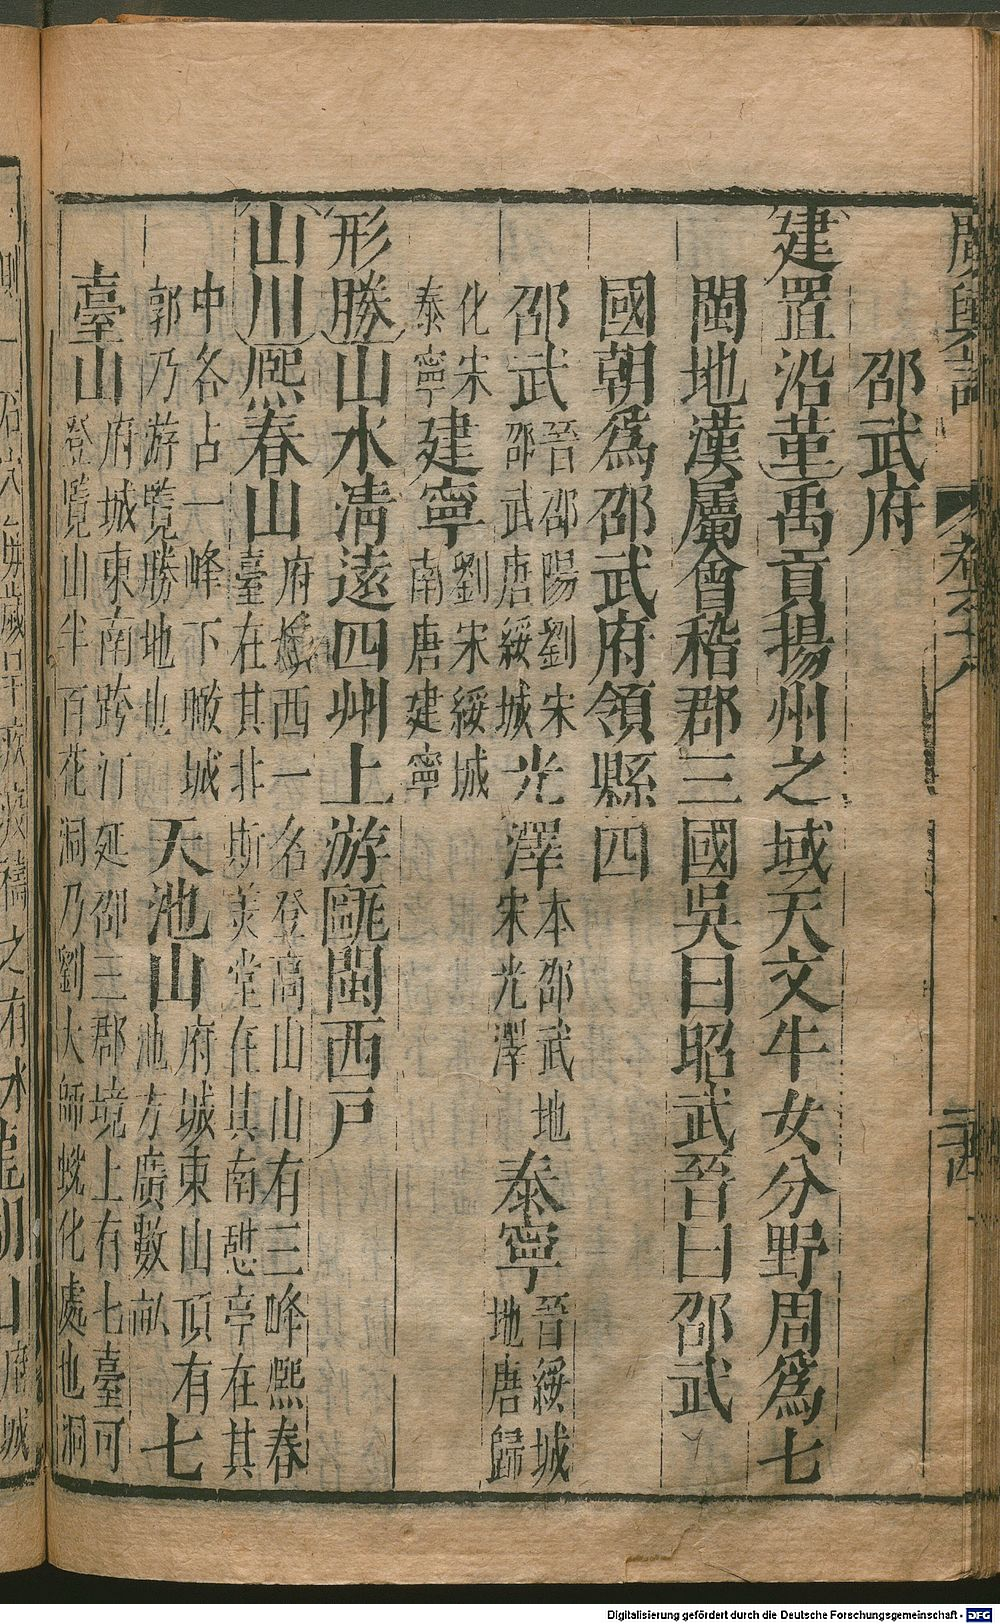 廣輿記
卷之十八
邵武府
建置沿革禹貢揚州之域天文牛女分野周爲七
閩地漢屬會稽郡三國吳曰昭武晉曰邵武
國朝爲邵武府領縣四
邵武晉邵陽劉宋邵武唐綏城光澤本邵武地宋光澤泰寧晉綏城地唐歸
化宋泰寧建寧劉宋綏城南唐建寧
形勝山水清遠四州上游甌閩西戶
山川熙春山府城西一名登高山山有三峰熙春臺在其北斯美堂在其南憩亭在其
中各占一峰下瞰城郭乃游覽勝地也天池山府城東山頂有池方廣數畝七
臺山府城東南跨汀延邵三郡境上有七臺可登覽山半百花洞乃劉大師蛻化處也洞
Digitalisierung gefördert durch die Deutsche Forschungsgemeinschaft - DFG